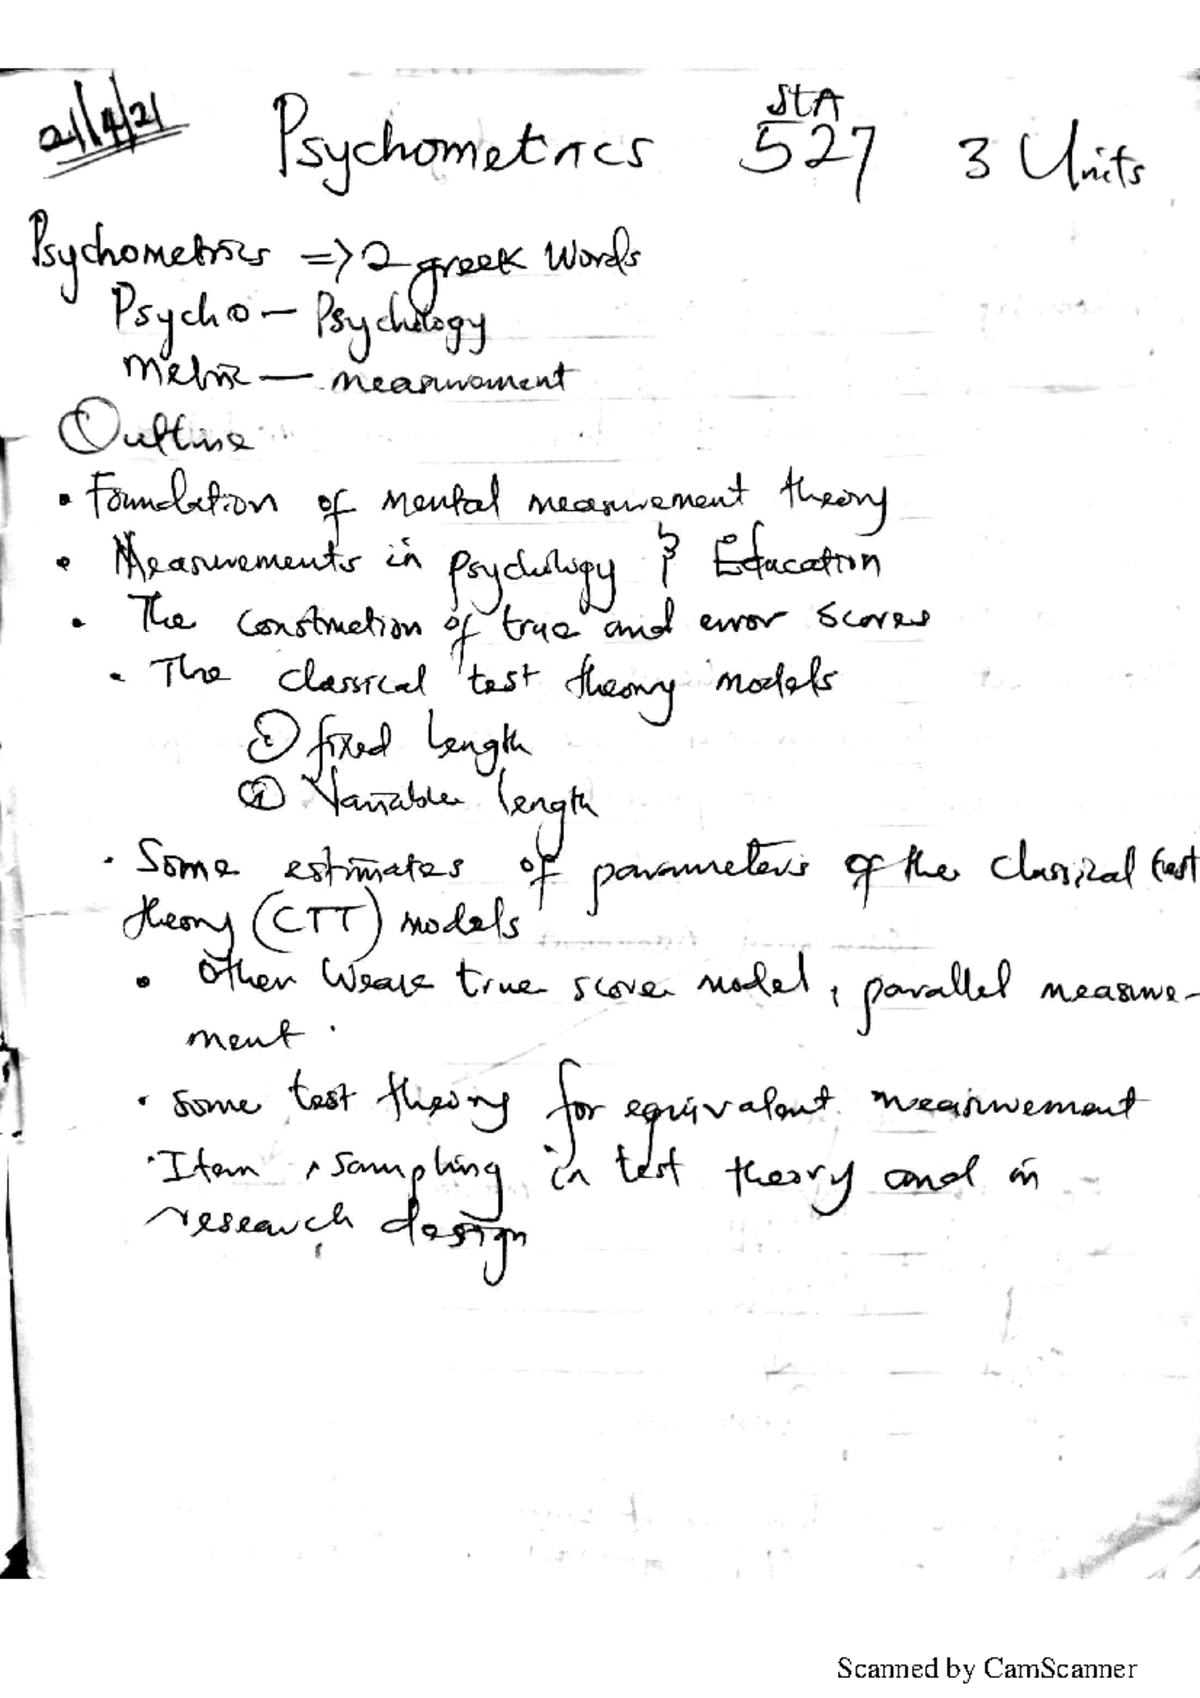 21/4/21 Psychometrics STA 527 3 Units
Psychometrics => 2 greek words
Psycho - Psychology
Metric - measurement
Outline
• Foundation of mental measurement theory
• Measurements in psychology & Education
• The construction of true and error scores
• The classical test theory models
(i) fixed length
(ii) Variable length
• Some estimates of parameters of the classical test
theory (CTT) models
• Other Weak true score model, parallel measure-
ment.
• some test theory for equivalent measurement
• Item, sampling in test theory and in
research design
Scanned by CamScanner